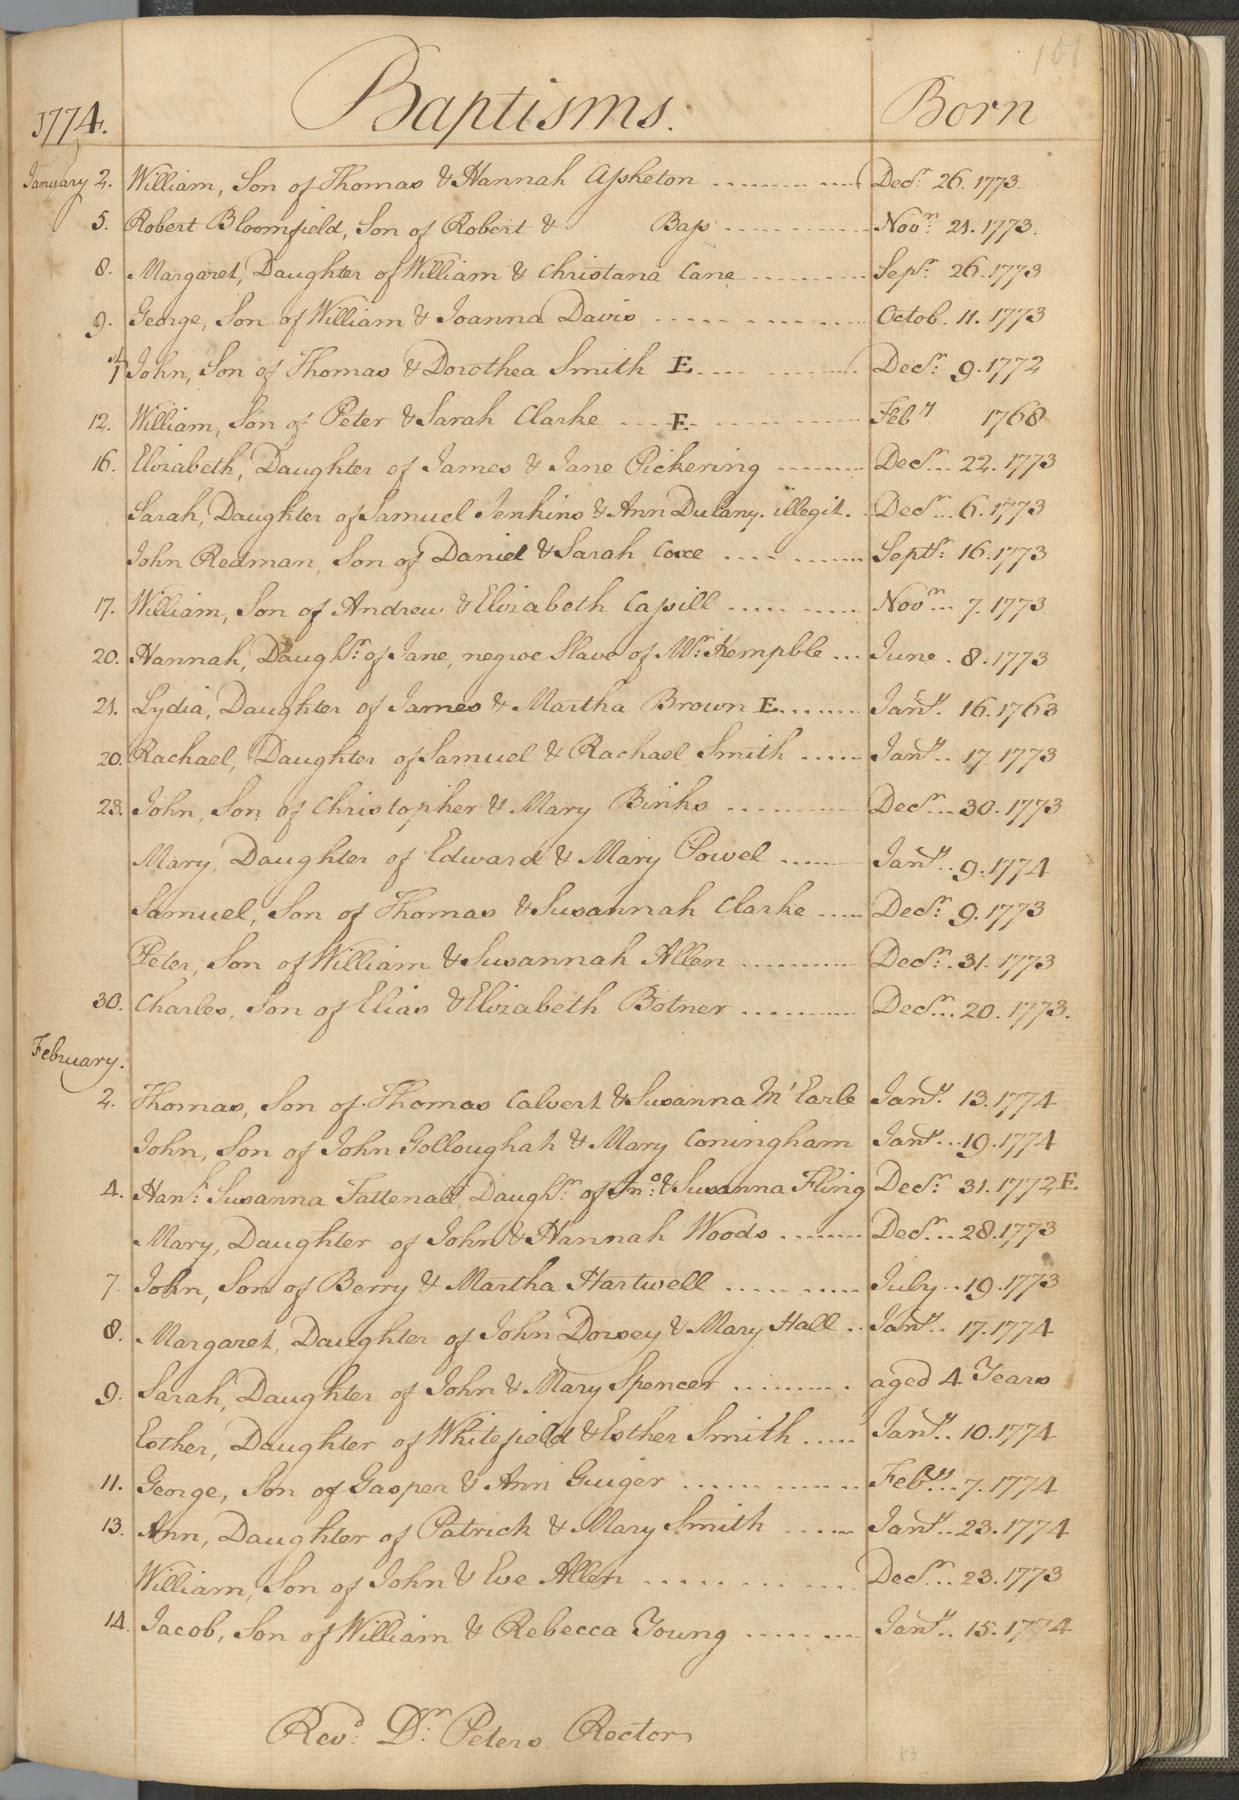 101
1774. Baptisms. Born
January 2. William, Son of Thomas & Hannah Apsheton ........ Decr. 26. 1773.
5. Robert Bloomfield, Son of Robert & Bass ........ Novr. 21. 1773.
8. Margaret, Daughter of William & Christana Cane ........ Sepr. 26. 1773
9. George, Son of William & Joanna Davis ........ Octob. 11. 1773
John, Son of Thomas & Dorothea Smith E ........ Decr. 9. 1772
12. William, Son of Peter & Sarah Clarke .... E ........ Feby 1768
16. Elizabeth, Daughter of James & Jane Pickering ........ Decr... 22. 1773
Sarah, Daughter of Samuel Jenkins & Ann Dulany. illegit. . Decr... 6. 1773
John Redman, Son of Daniel & Sarah Coxe ........ Septr. 16. 1773
17. William, Son of Andrew & Elizabeth Capill ........ Novr... 7. 1773
20. Hannah, Daughr. of Jane, negroe Slave of Mr. Kempble ... June . 8. 1773
21. Lydia, Daughter of James & Martha Brown E ........ Jany. 16. 1763
20. Rachael, Daughter of Samuel & Rachael Smith ..... Jany.. 17. 1773
23. John, Son of Christopher & Mary Binks ........ Decr... 30. 1773
Mary, Daughter of Edward & Mary Powel ...... Jany.. 9. 1774
Samuel, Son of Thomas & Susannah Clarke ..... Decr. 9. 1773
Peter, Son of William & Susannah Allen ........ Decr.. 31. 1773
30. Charles, Son of Elias & Elizabeth Botner ........ Decr... 20. 1773.
February.
2. Thomas, Son of Thomas Calvert & Susanna McEarle Jany. 13. 1774
John, Son of John Golloughah & Mary Coningham Jany... 19. 1774
4. Hanh. Susanna Tattenall, Daughr. of Jno. & Susanna Fling Decr. 31. 1772 E.
Mary, Daughter of John & Hannah Woods ........ Decr... 28. 1773
7. John, Son of Berry & Martha Hartwell ........ July .. 19. 1773
8. Margaret, Daughter of John Dorsey & Mary Hall .. Jany.. 17. 1774
9. Sarah, Daughter of John & Mary Spencer ........ aged 4 Years
Esther, Daughter of Whitefield & Esther Smith ..... Jany.. 10. 1774
11. George, Son of Gasper & Ann Guiger ........ Feby... 7. 1774
13. Ann, Daughter of Patrick & Mary Smith ..... Jany.. 23. 1774
William, Son of John & Eve Allen ........ Decr... 23. 1773
14. Jacob, Son of William & Rebecca Young ........ Jany.. 15. 1774
Revd. Dr. Peters Rector